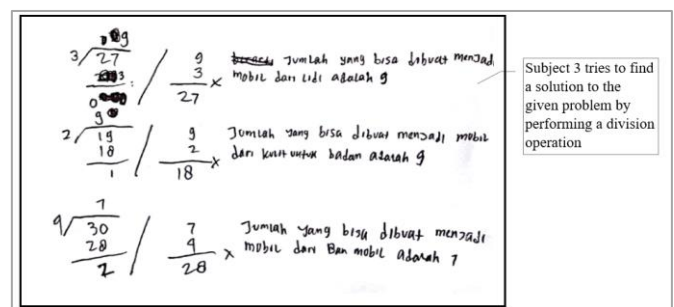 9
3/27 / 9 Jumlah yang bisa dibuat menjadi
3 × mobil dari lidi adalah 9
0 27
9
2/19 / 9 Jumlah yang bisa dibuat menjadi mobil
18 2 × dari kulit untuk badan adalah 9
1 18
7
4/30 / 7 Jumlah yang bisa dibuat menjadi
28 4 × mobil dari Ban mobil adalah 7
2 28
Subject 3 tries to find
a solution to the
given problem by
performing a division
operation